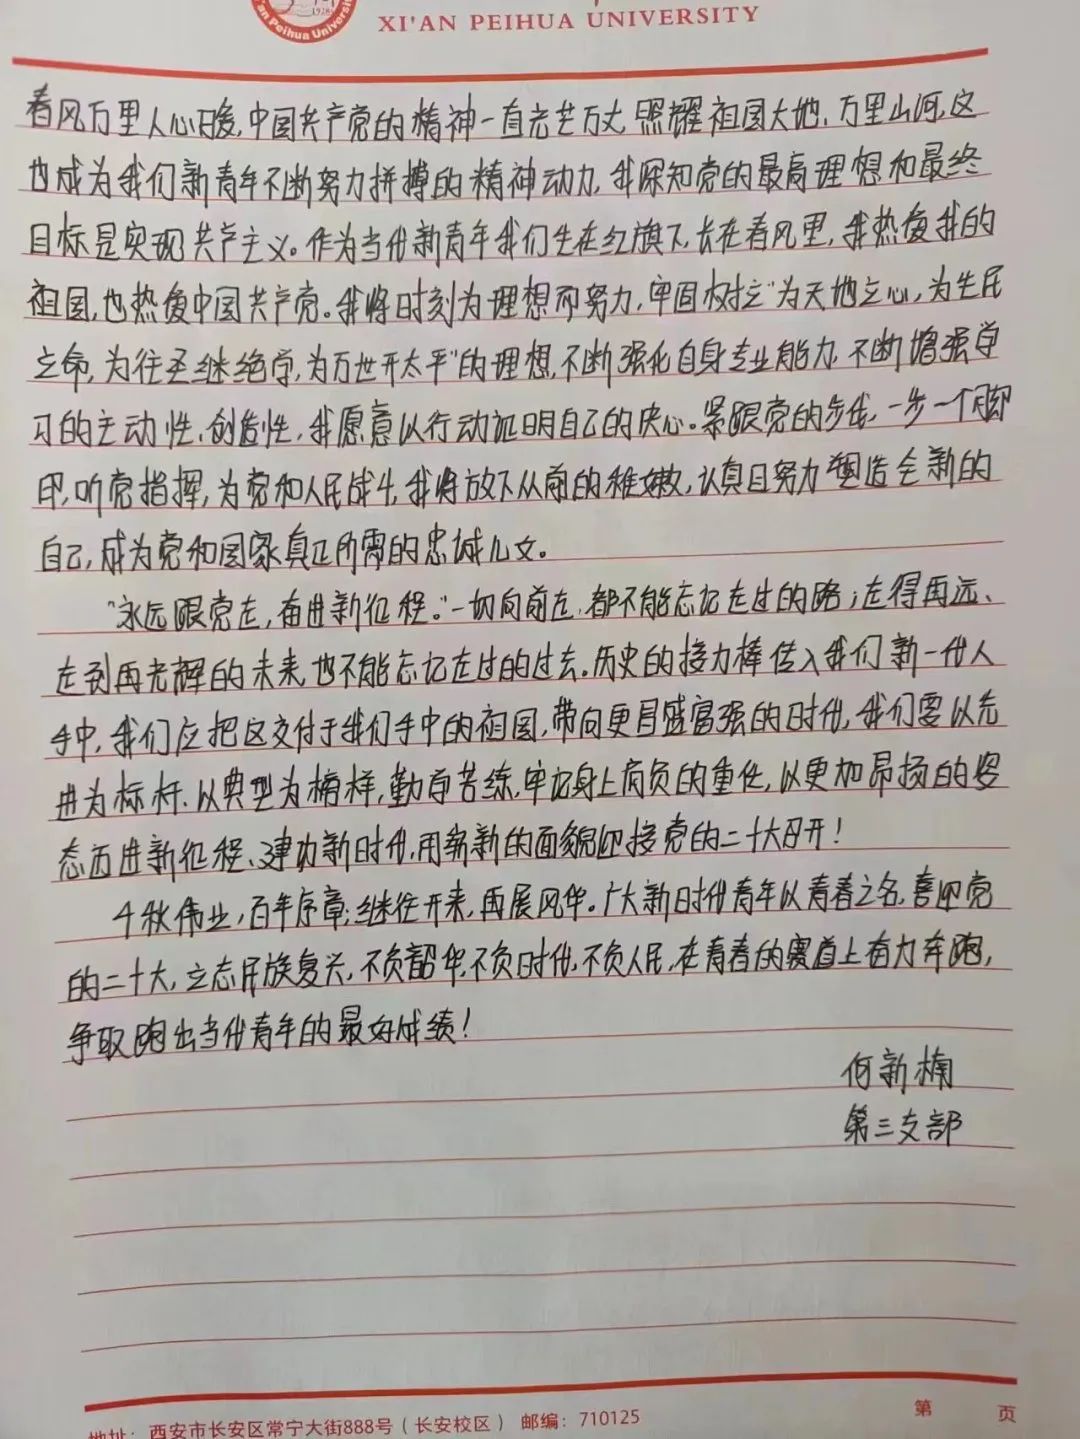 Xi'an Peihua University
1928
XI'AN PEIHUA UNIVERSITY
春风万里人心暖,中国共产党的精神一直光芒万丈,照耀祖国大地、万里山河,这
也成为我们新青年不断努力拼搏的精神动力,我深知党的最高理想和最终
目标是实现共产主义。作为当代新青年我们生在红旗下,长在春风里,我热爱我的
祖国,也热爱中国共产党。我将时刻为理想而努力,牢固树立"为天地立心,为生民
立命,为往圣继绝学,为万世开太平"的理想,不断强化自身专业能力,不断增强学
习的主动性、创造性,我愿意以行动证明自己的决心。紧跟党的步伐,一步一个脚
印,听党指挥,为党和人民战斗,我将放下从前的稚嫩,认真且努力塑造全新的
自己,成为党和国家真正所需的忠诚儿女。
"永远跟党走,奋进新征程。"一切向前走,都不能忘记走过的路;走得再远、
走到再光辉的未来,也不能忘记走过的过去。历史的接力棒传入我们新一代人
手中,我们应把这交付于我们手中的祖国,带向更昌盛富强的时代,我们要以先
进为标杆、以典型为榜样,勤学苦练,牢记身上肩负的重任,以更加昂扬的姿
态迈进新征程、建功新时代,用崭新的面貌迎接党的二十大召开!
千秋伟业,百年序章;继往开来,再展风华。广大新时代青年以青春之名,喜迎党
的二十大,立志民族复兴,不负韶华,不负时代,不负人民,在青春的赛道上奋力奔跑,
争取跑出当代青年的最好成绩!
何新楠
第三支部
地址：西安市长安区常宁大街888号（长安校区） 邮编：710125
第 页